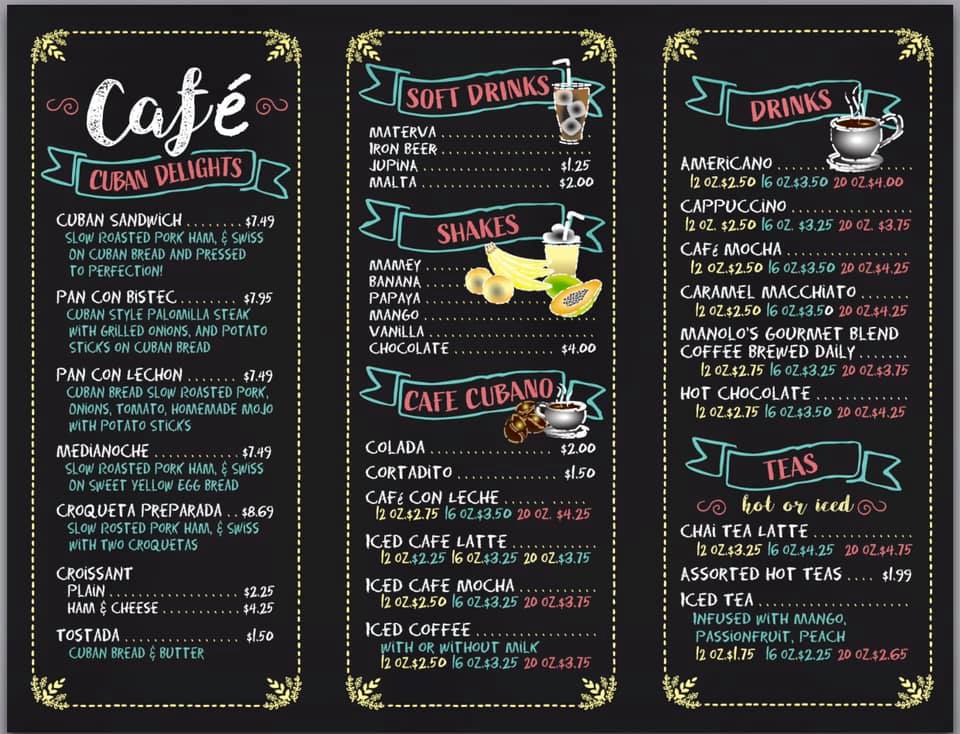 Café
CUBAN DELIGHTS
CUBAN SANDWICH ........ $7.49
SLOW ROASTED PORK HAM, & SWISS
ON CUBAN BREAD AND PRESSED
TO PERFECTION!
PAN CON BISTEC ........ $7.95
CUBAN STYLE PALOMILLA STEAK
WITH GRILLED ONIONS, AND POTATO
STICKS ON CUBAN BREAD
PAN CON LECHON ....... $7.49
CUBAN BREAD SLOW ROASTED PORK,
ONIONS, TOMATO, HOMEMADE MOJO
WITH POTATO STICKS
MEDIANOCHE ............ $7.49
SLOW ROASTED PORK HAM, & SWISS
ON SWEET YELLOW EGG BREAD
CROQUETA PREPARADA .. $8.69
SLOW ROSTED PORK HAM, & SWISS
WITH TWO CROQUETAS
CROISSANT
PLAIN ................. $2.25
HAM & CHEESE ............ $4.25
TOSTADA ................ $1.50
CUBAN BREAD & BUTTER
SOFT DRINKS
MATERVA ....................
IRON BEER ....................
JUPINA ................. $1.25
MALTA .................. $2.00
SHAKES
MAMEY ........
BANANA ........
PAPAYA ............
MANGO ....................
VANILLA ....................
CHOCOLATE .............. $4.00
CAFE CUBANO
COLADA ................. $2.00
CORTADITO .............. $1.50
CAFé CON LECHE ...........
12 OZ.$2.75 16 OZ.$3.50 20 OZ. $4.25
ICED CAFE LATTE ............
12 OZ.$2.25 16 OZ.$3.25 20 OZ.$3.75
ICED CAFE MOCHA ...........
12 OZ.$2.50 16 OZ.$3.25 20 OZ.$3.75
ICED COFFEE ................
WITH OR WITHOUT MILK
12 OZ.$2.50 16 OZ.$3.25 20 OZ.$3.75
DRINKS
AMERICANO .......
12 OZ.$2.50 16 OZ.$3.50 20 OZ.$4.00
CAPPUCCINO ................
12 OZ. $2.50 16 OZ. $3.25 20 OZ. $3.75
CAFé MOCHA ................
12 OZ.$2.50 16 OZ.$3.50 20 OZ.$4.25
CARAMEL MACCHIATO .......
12 OZ.$2.50 16 OZ.$3.50 20 OZ.$4.25
MANOLO'S GOURMET BLEND
COFFEE BREWED DAILY .......
12 OZ.$2.75 16 OZ.$3.25 20 OZ.$3.75
HOT CHOCOLATE .............
12 OZ.$2.75 16 OZ.$3.50 20 OZ.$4.25
TEAS
hot or iced
CHAI TEA LATTE .............
12 OZ.$3.25 16 OZ.$4.25 20 OZ.$4.75
ASSORTED HOT TEAS .... $1.99
ICED TEA ....................
INFUSED WITH MANGO,
PASSIONFRUIT, PEACH
12 OZ.$1.75 16 OZ.$2.25 20 OZ.$2.65